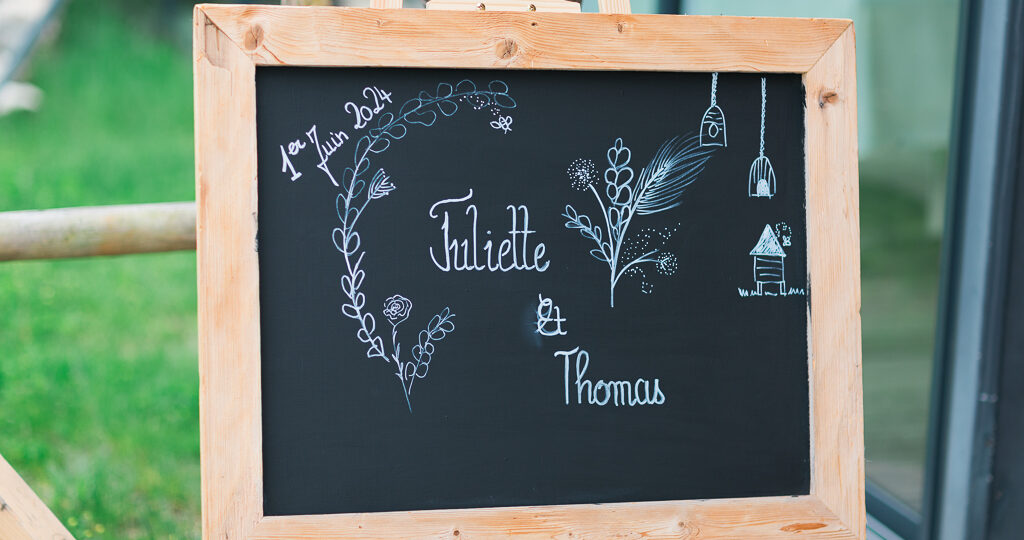 1er Juin 2024
Juliette
&
Thomas